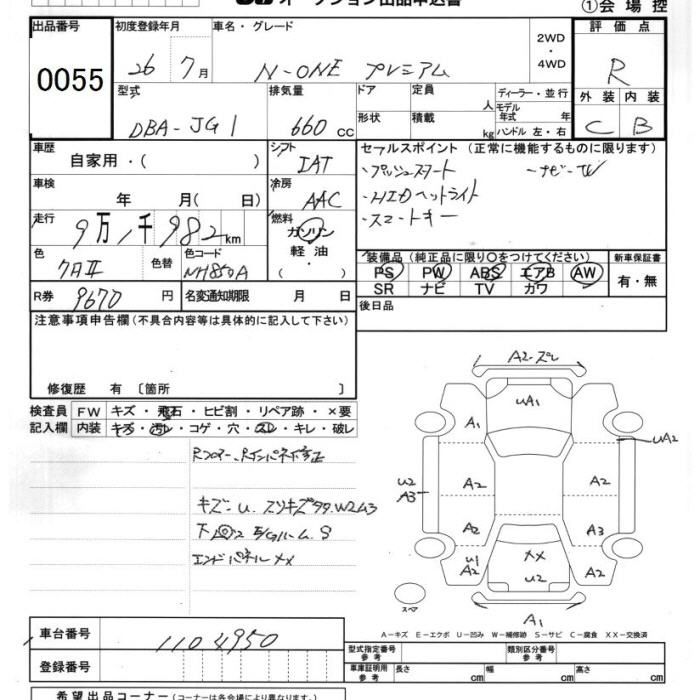 オークション出品申込書
①会場控
出品番号 0055
初度登録年月 26 7月
車名・グレード N-ONE プレミアム
2WD・4WD
評価点 R
外装 C 内装 B
型式 DBA-JG1
排気量 660 cc
ドア 形状
定員 人 積載 kg
ディーラー・並行
モデル年式 年
ハンドル 左・右
車歴 自家用・( )
シフト IAT
セールスポイント (正常に機能するものに限ります)
・プッシュスタート ・ナビ・TV
・HIDヘッドライト
・スマートキー
車検 年 月( 日)
冷房 AAC
走行 9万1千982km
燃料 ガソリン・軽油・( )
色 クロII 色替
色コード NH850A
装備品 (純正品に限り○をつけてください)
PS PW ABS エアB AW
SR ナビ TV カワ
新車保証書 有・無
R券 9670円
名変通知期限 月 日
後日品
注意事項申告欄 (不具合内容等は具体的に記入して下さい)
修復歴 有 〔箇所 〕
検査員記入欄
FW キズ・飛石・ヒビ割・リペア跡・×要
内装 キズ・汚レ・コゲ・穴・スレ・キレ・破レ
Rフロアー、Rインパネ修正
キズ一U.スリキズタタ.W2ム3
エンドパネルXX
A2-ズレ
UA1
A1
UA2
U2
A3
A2
A2
A2
A3
U1
A2
XX
U2
A2
A1
スペア
A－キズ E－エクボ U－凹み W－補修跡 S－サビ C－腐食 XX－交換済
車台番号 1104950
登録番号
型式指定番号 参考
類別区分番号 参考
車庫証明用 参考 長さ cm 幅 cm 高さ cm
希望出品コーナー (コーナー名は各会場により異なります)